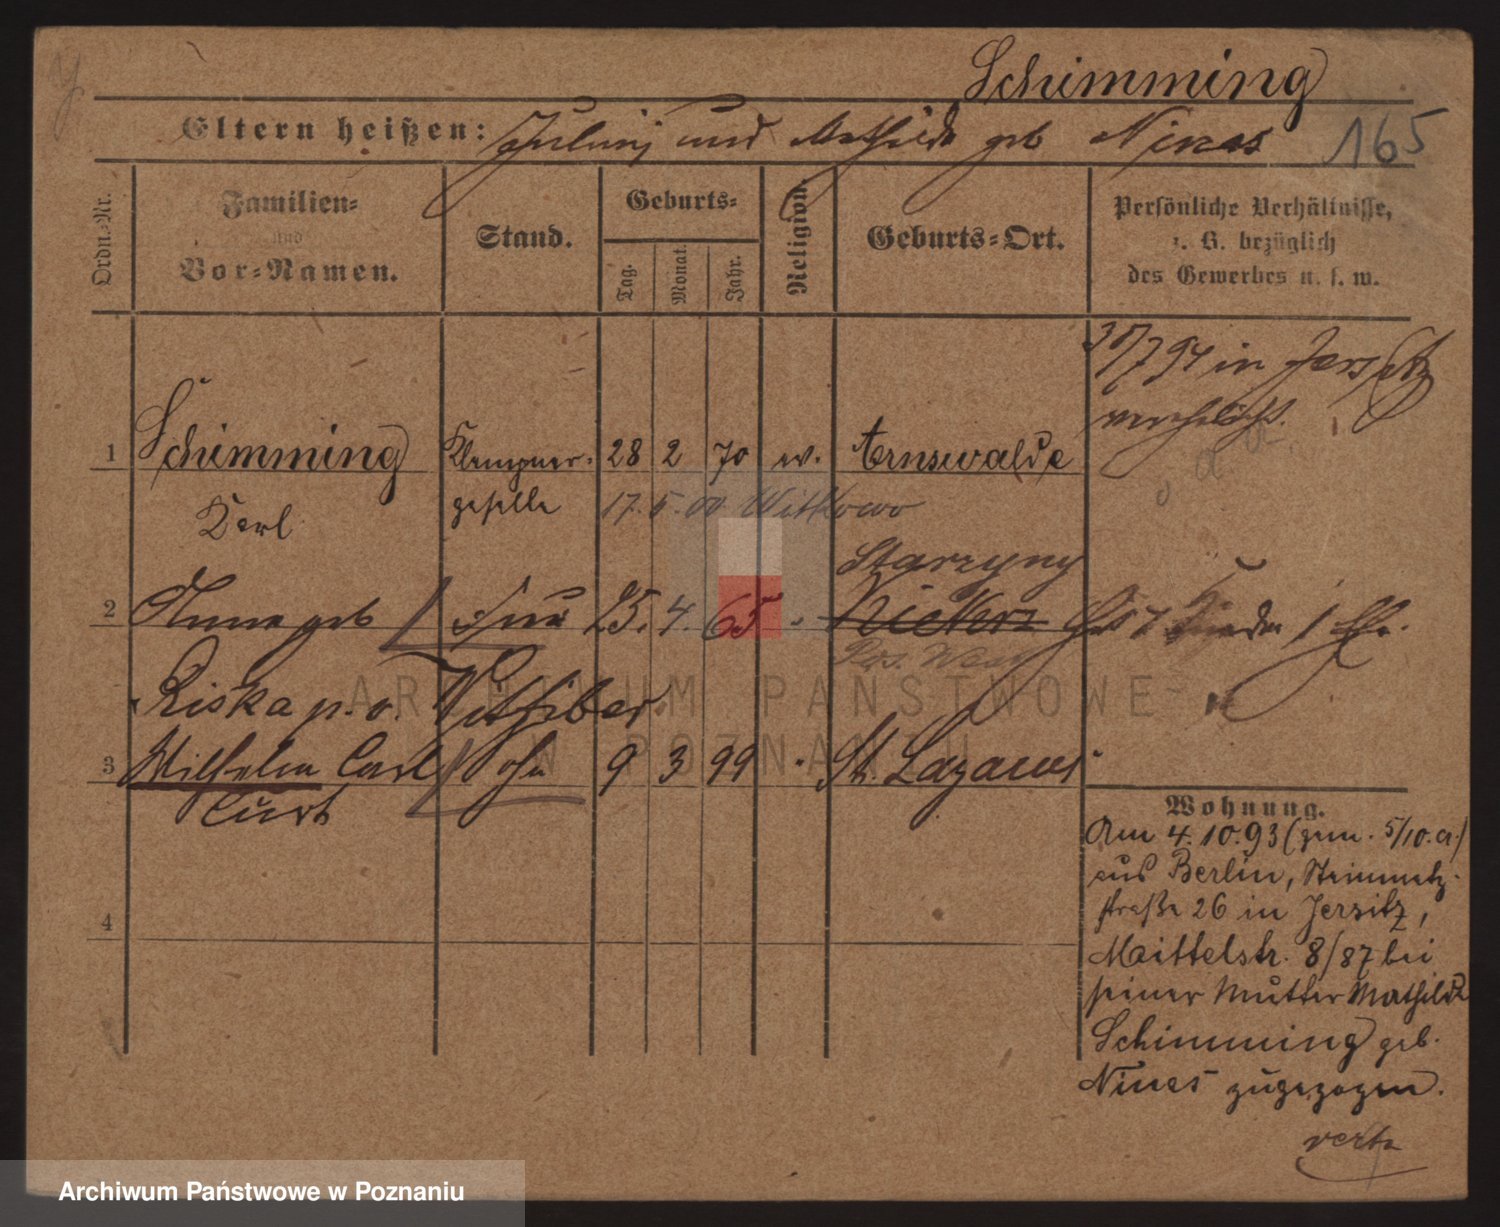 Schimming
Eltern heißen: Julius und Mathilde geb Nines
165
Ordn.-Nr.
Familien-
und
Vor-Namen.
Stand.
Geburts-
Tag.
Monat.
Jahr.
Religion
Geburts-Ort.
Persönliche Verhältnisse,
z. B. bezüglich
des Gewerbes u. s. w.
30/7 94 in Jersitz
verehelicht.
1 Schimming Klempner- 28 2 70 ev. Arnswalde
Karl geselle 17. 5. 00 Witkowo
Starzyny
2 Anna geb Frau 25. 4. 65 Kiekrz hat 7 Kinder
Pos. West
Riska p. o.
3 Wilhelm Carl Sohn 9 3 99 St. Lazarus
Curt
4
Wohnung.
Am 4.10.93 (gem. 5/10. a.)
aus Berlin, Steinmetz-
straße 26 in Jersitz,
Mittelstr. 8/87 bei
seiner Mutter Mathilde
Schimming geb.
Nines zugezogen.
verte
ARCHIWUM PAŃSTWOWE
W POZNANIU
Archiwum Państwowe w Poznaniu